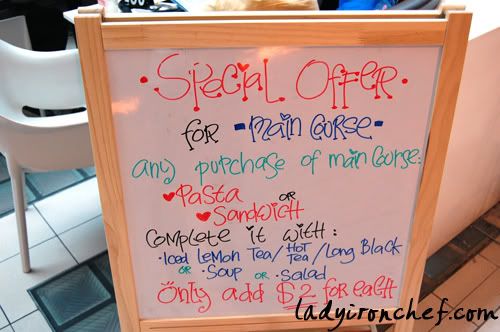 • Special Offer •
for - main Course -
any purchase of main Course:
♥ Pasta or
♥ Sandwich
Complete it with:
• Iced Lemon Tea / Hot Tea / Long Black
or • Soup or • Salad
Only add $2 for each
ladyironchef.com